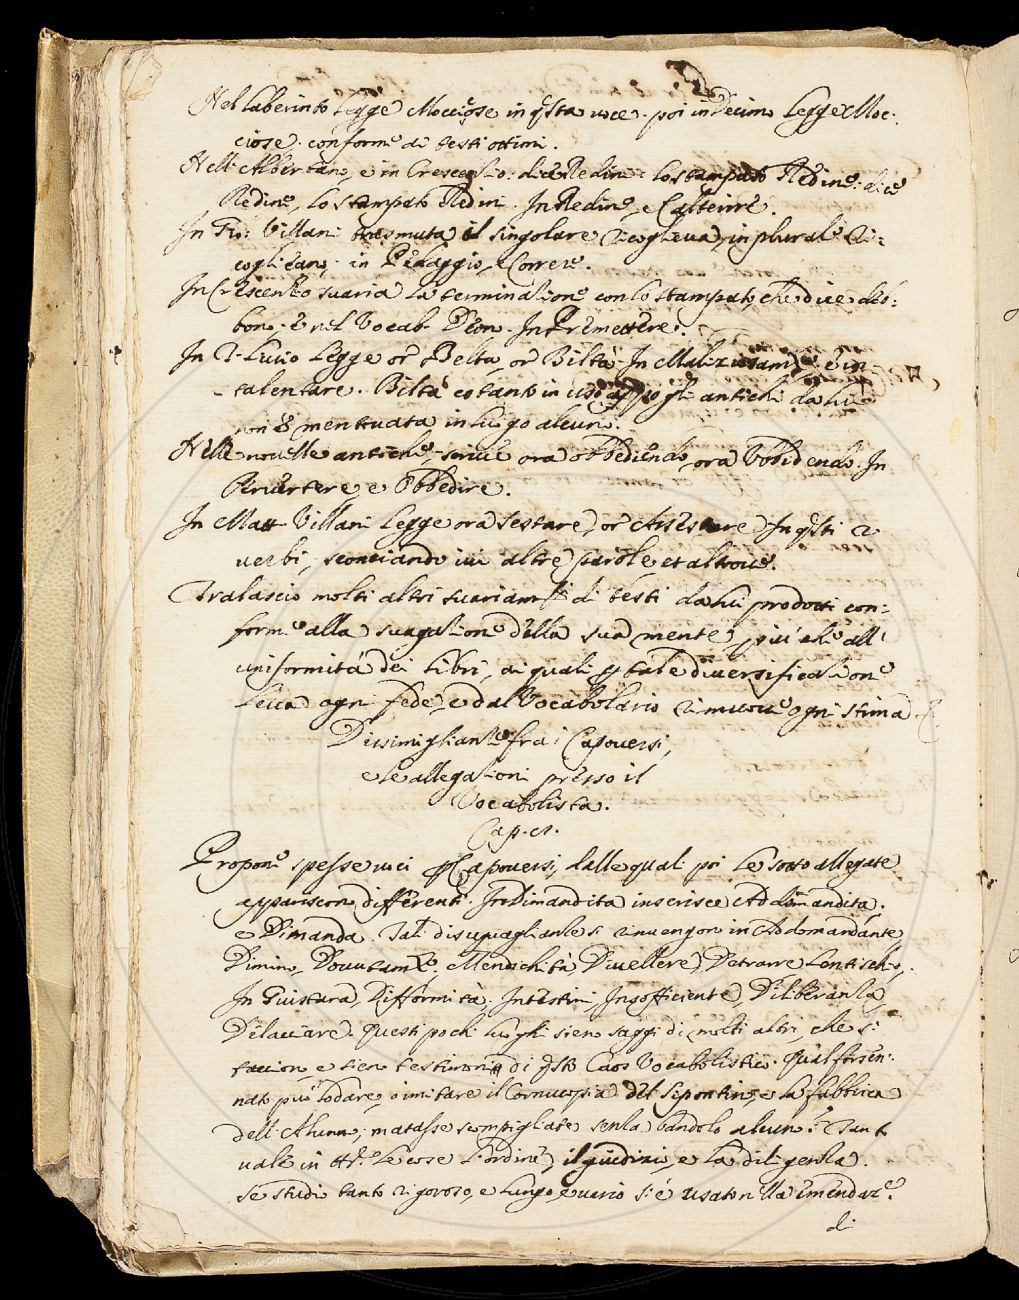 Nel Laberinto Legge Mocciose in qsta voce. poi in Decimo Legge Moc-
ciose. conforme ai testi ottimi.
Nell' Albertano, e in Crescenzio: dice Redine: lo stampato Redine: dice
Redine, Lo stampato Redini. In Redine, e Calterire.
In Gio: Villani trasmuta il singolare ricoglieua, in plurale ri-
coglieano. in Pedaggio, e Correre.
In Crescenzio suaria la terminazione con lo stampato, che dice deb-
bono. e nel Vocab. Deono. In Premettere.
In Legge or Belta, or Biltà. In Maliziosam.te e in
talentare. Biltà è tanto in uso appo gli antichi da lui
non è mentuata in luogo alcuno.
Nelle nouelle antiche, scriue ora obbediendo, ora Vbbidendo. In
Peruertere, e Obbedire.
In Matt. Villani Legge ora sestare, or Assestare. In qsti 2
uerbi, sconciando iui altre parole, et altroue.
Tralascio molti altri suariam.ti di testi da lui prodotti con-
forme alla suagazione della sua mente, più che all'
uniformità dei libri, ai quali p tale diuersificazione
Leua ogni fede, e dal Vocabolario rimuoue ogni stima.
Dissimiglianze fra i Capouersi,
e le allegazioni presso il
Vocabolista.
Cap.
Propone spesse uoci p Capouersi, dalle quali poi le sotto allegate
appariscon differenti. In Dimandita inserisce Addomandita.
e Dimanda. Tali disuguaglianze si rinuengon in Addomandante,
Dimino, Mendichità, Diuellere, Detrarre, Lentischio,
In Guistara, Difformità, Intestini, Insofficiente, Diliberanza,
Dilacciare. Questi pochi luoghi sien saggi di molti altri, che si
taccion, e sien testimoni di qsto Caos Vocabolistico. Qual forsen-
nato può lodare, o imitare il Cornucopia del Sipontino, e la fabbrica
dell' Alunno, matasse scompigliate senza bandolo alcuno? Tanto
uale in le cose l'ordine, il giudizio, e la diligenza.
Se studio tanto rigoroso, e lungo, e uario si è usato nella emendaz.e
di